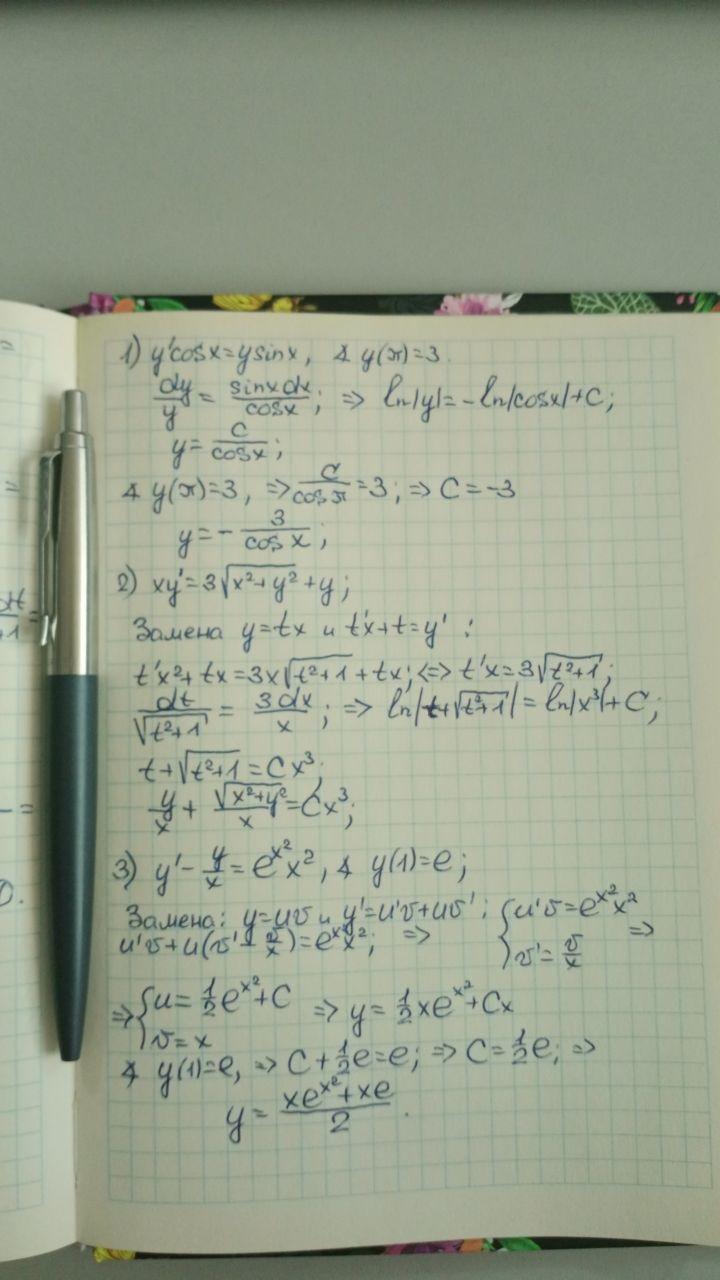 1) y'cosx=ysinx, ∡ y(π)=3.
dy/y = sinxdx/cosx; => ln|y|=-ln|cosx|+C;
y= C/cosx;
∡ y(π)=3, => C/cosπ=3; => C=-3
y=- 3/cosx;
2) xy'=3√(x²+y²)+y;
Замена y=tx и t'x+t=y' :
t'x²+tx=3x√(t²+1)+tx; <=> t'x=3√(t²+1);
dt/√(t²+1) = 3dx/x; => ln|t+√(t²+1)|=ln|x³|+C;
t+√(t²+1)=Cx³;
y/x + √(x²+y²)/x=Cx³;
3) y'- y/x=e^(x²)x², ∡ y(1)=e;
Замена: y=uv и y'=u'v+uv'; {u'v=e^(x²)x²
u'v+u(v'- v/x)=e^(x²)x²; => v'= v/x =>
=> {u= 1/2 e^(x²)+C => y= 1/2 xe^(x²)+Cx
v=x
∡ y(1)=e, => C+ 1/2 e=e; => C= 1/2 e; =>
y= (xe^(x²)+xe)/2.
=
=
dt
+1 =
=
0.